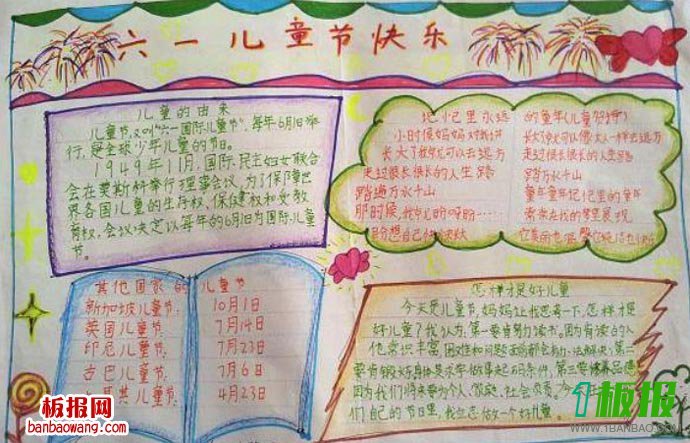 六一儿童节快乐
儿童的由来
儿童节,又叫“六一国际儿童节”,每年6月1日举
行,是全球少年儿童的节日。
1949年11月,国际民主妇女联合
会在莫斯科举行理事会议,为了保障世
界各国儿童的生存权、保健权和受教
育权,会议决定以每年的6月1日为国际儿童
节。
记忆里永远的童年(儿童
小时候妈妈对我讲
长大了我就可以去远方
走过很长很长的人生路
踏遍万水千山
那时候,我就
盼想自己快快
长大了就可以像大人一样去远方
走过很长很长的人生路
踏万水千山
童年童年记忆里的童年
常常在我的梦里展现
其他国家的儿童节
新加坡儿童节:10月1日
英国儿童节:7月14日
印尼儿童节:7月23日
古巴儿童节:7月6日
4月23日
怎样才是好儿童
今天是儿童节,妈妈让我思考一下,怎样才是
好儿童?我认为,第一要肯努力读书。因为有读的人
他常识丰富,
第三要修养品德
因为我们将来要为个人、家庭、社会
们自己的节日里,我立志做一个好儿童。
板报网
banbaowang.com
1板报
WWW.1BANBAO.COM